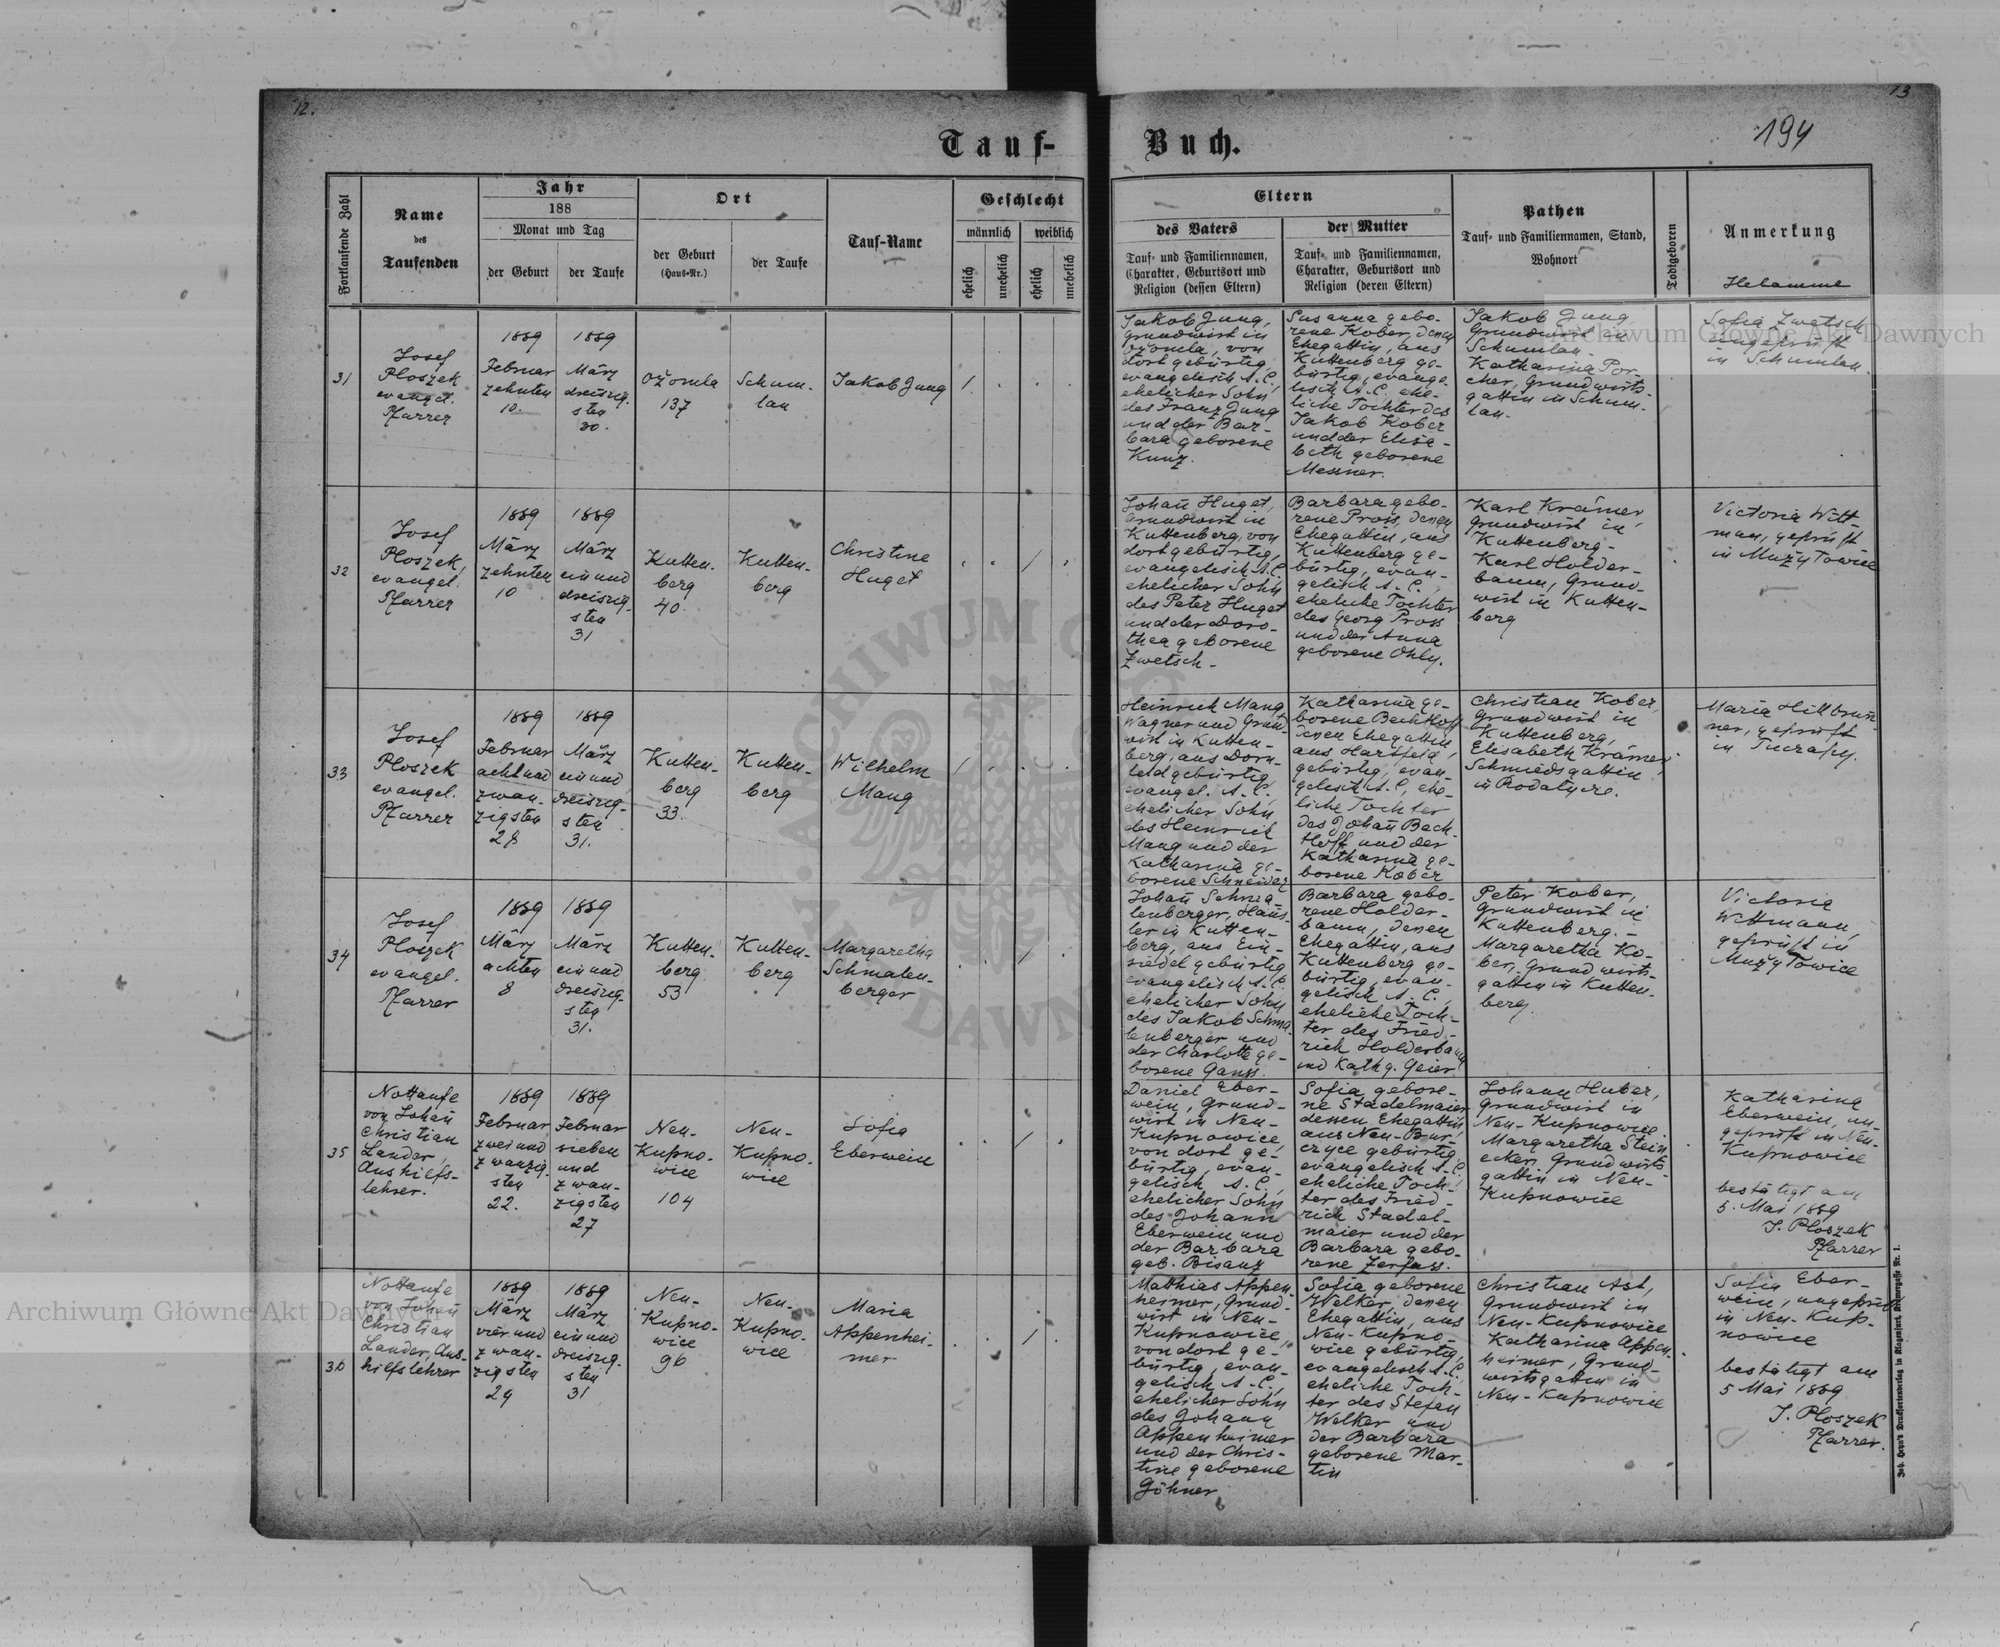 12.
13
194
Tauf-
Buch.
Fortlaufende Zahl
Name
des
Taufenden
Jahr
188
Monat und Tag
der Geburt
der Taufe
Ort
der Geburt
(Haus-Nr.)
der Taufe
Tauf-Name
Geschlecht
männlich
weiblich
ehelich
unehelich
ehelich
unehelich
Eltern
des Vaters
Tauf- und Familiennamen,
Charakter, Geburtsort und
Religion (dessen Eltern)
der Mutter
Tauf- und Familiennamen,
Charakter, Geburtsort und
Religion (deren Eltern)
Pathen
Tauf- und Familiennamen, Stand,
Wohnort
Todtgeboren
Anmerkung
Hebamme
31
Josef
Ploszek
evangel.
Pfarrer
1889
Februar
zehnten
10.
1889
März
dreiszig-
sten
30.
Ožomla
137
Schum-
lau
Jakob Jung
1
Jakob Jung,
Grundwirt in
Ožomla, von
dort gebürtig,
evangelisch A. C.,
ehelicher Sohn
des Franz Jung
und der Bar-
bara geborene
Kunz.
Susanna gebo-
rene Kober, denen
Ehegattin, aus
Kuttenberg ge-
bürtig, evange-
lisch A. C., ehe-
liche Tochter des
Jakob Kober
und der Elisa-
beth geborene
Messner.
Jakob Jung
Grundwirt in
Schumlau.
Katharina Por-
cher, Grundwirts-
gattin in Schum-
lau.
Sofia Zwetsch
ungeprüft
in Schumlau.
32
Josef
Ploszek,
evangel.
Pfarrer
1889
März
zehnten
10
1889
März
ein und
dreiszig-
sten
31
Kutten-
berg
40
Kutten-
berg
Christine
Huget
1
Johann Huget,
Grundwirt in
Kuttenberg, von
dort gebürtig,
evangelisch A. C.
ehelicher Sohn
des Peter Huget
und der Doro-
thea geborene
Zwetsch.
Barbara gebo-
rene Pross, denen
Ehegattin, aus
Kuttenberg ge-
bürtig, evan-
gelisch A. C.,
eheliche Tochter
des Georg Pross
und der Anna
geborene Ohly.
Karl Krämer
Grundwirt in
Kuttenberg-
Karl Holder-
baum, Grund-
wirt in Kutten-
berg
Victoria Witt-
man, geprüft
in Mużyłowice
33
Josef
Ploszek
evangel.
Pfarrer
1889
Februar
acht und
zwan-
zigsten
28
1889
März
ein und
dreiszig-
sten
31.
Kutten-
berg
33.
Kutten-
berg
Wilhelm
Mang
1
Heinrich Mang,
Wagner und Grund-
wirt in Kutten-
berg, aus Dorn-
feld gebürtig,
evangel. A. C.,
ehelicher Sohn
des Heinrich
Mang und der
Katharina ge-
borene Schneider
Katharina ge-
borene Bechtloff
denen Ehegattin,
aus Hartfeld
gebürtig, evan-
gelisch A. C., ehe-
liche Tochter
des Johann Bech-
tloff und der
Katharina ge-
borene Kober
Christian Kober,
Grundwirt in
Kuttenberg,
Elisabeth Krämer
Schmiedsgattin
in Rodatycze.
Maria Hillbrun-
ner, geprüft
in
34
Josef
Ploszek
evangel.
Pfarrer
1889
März
achten
8
1889
März
ein und
dreiszig-
sten
31.
Kutten-
berg
53
Kutten-
berg
Margaretha
Schmalen-
berger
1
Johann Schma-
lenberger, Häus-
ler in Kutten-
berg, aus Ein-
siedel gebürtig
evangelisch A. C.
ehelicher Sohn
des Jakob Schma-
lenberger und
der Charlotte ge-
borene Ganss.
Barbara gebo-
rene Holder-
baum, denen
Ehegattin, aus
Kuttenberg ge-
bürtig, evan-
gelisch A. C.,
eheliche Toch-
ter des Fried-
rich Holderbaum
und Kath. g. Geier
Peter Kober,
Grundwirt in
Kuttenberg.-
Margaretha Ko-
ber, Grundwirts-
gattin in Kutten-
berg.
Victoria
Wittmann,
geprüft in
Mużyłowice
35
Nottaufe
von Johann
Christian
Lander,
Aushilfs-
lehrer.
1889
Februar
zwei und
zwanzig-
sten
22.
1889
Februar
sieben
und
zwan-
zigsten
27
Neu-
Kupno-
wice
104
Neu-
Kupno-
wice
Sofia
Eberwein
1
Daniel Eber-
wein, Grund-
wirt in Neu-
Kupnowice,
von dort ge-
bürtig, evan-
gelisch A. C.,
ehelicher Sohn
des Johann
Eberwein und
der Barbara
geb. Bisanz
Sofia gebore-
ne Stadelmaier
denen Ehegattin
aus Neu-Bur-
czyce gebürtig,
evangelisch A. C.
eheliche Toch-
ter des Fried-
rich Stadel-
maier und der
Barbara gebo-
rene Zerfass.
Johann Huber,
Grundwirt in
Neu-Kupnowice
Margaretha Stein
ecker, Grundwirts-
gattin in Neu-
Kupnowice
Katharina
Eberwein, un-
geprüft in Neu-
Kupnowice
bestätigt am
5. Mai 1889
J. Ploszek
Pfarrer
36
Nottaufe
von Johann
Christian
Lander, Aus-
hilfslehrer
1889
März
vier und
zwan-
zigsten
24
1889
März
ein und
dreiszig-
sten
31
Neu-
Kupno-
wice
96
Neu-
Kupno-
wice
Maria
Appenhei-
mer
1
Matthias Appen-
heimer, Grund-
wirt in Neu-
Kupnowice,
von dort ge-
bürtig, evan-
gelisch A. C.,
ehelicher Sohn
des Johann
Appenheimer
und der Chris-
tine geborene
Göhner
Sofia geborene
Welker, denen
Ehegattin, aus
Neu-Kupno-
wice gebürtig,
evangelisch A. C.
eheliche Toch-
ter des Stefen
Welker und
der Barbara
geborene Mar-
tin
Christian Ast,
Grundwirt in
Neu-Kupnowice
Katharina Appen-
heimer, Grund-
wirtsgattin in
Neu-Kupnowice
Sofia Eber-
wein, ungeprüft
in Neu-Kup-
nowice
bestätigt am
5 Mai 1889
J. Ploszek
Pfarrer.
Archiwum Główne Akt Dawnych
Archiwum Główne Akt Dawnych